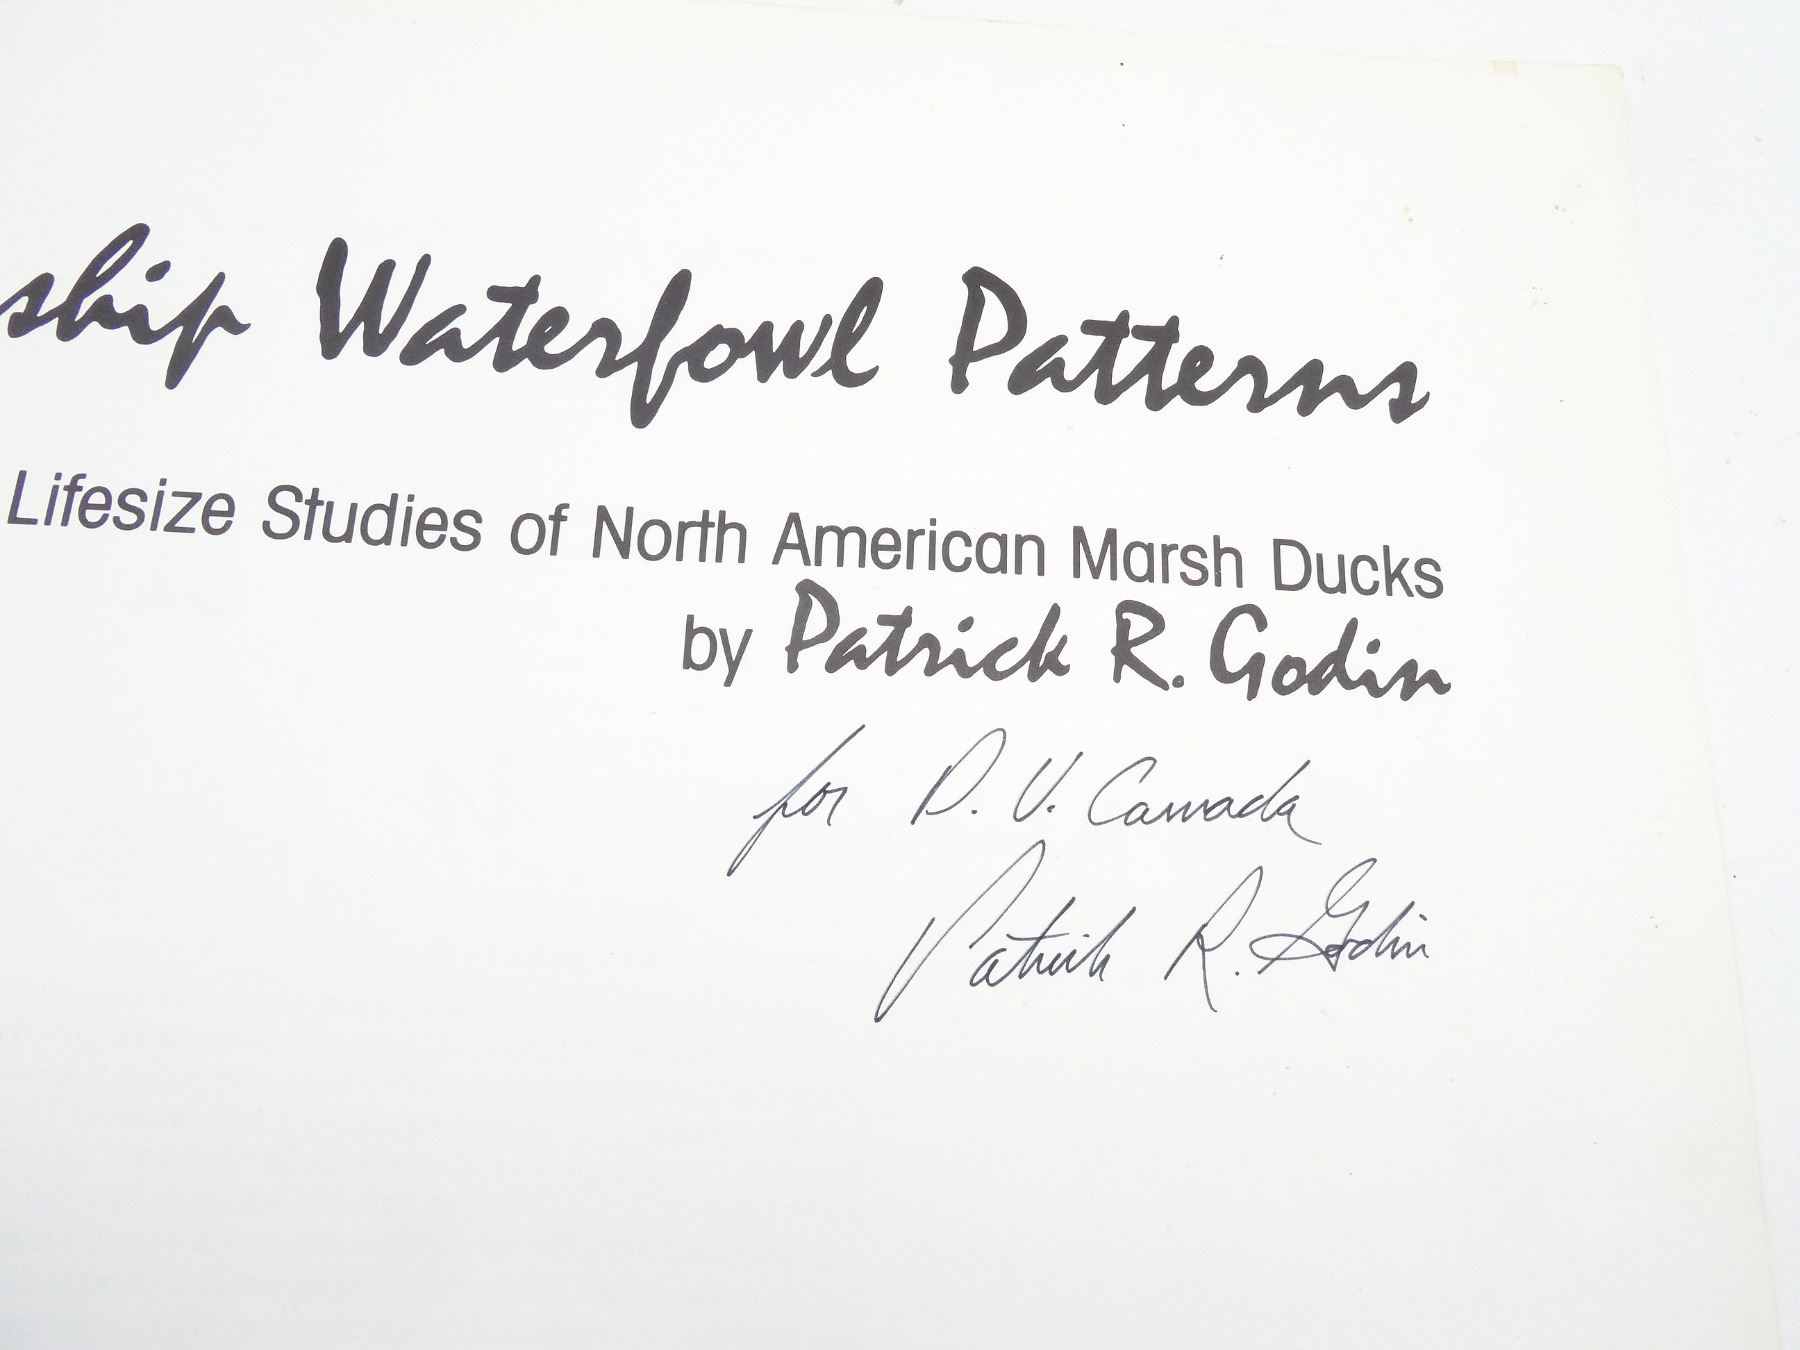 ship Waterfowl Patterns
Lifesize Studies of North American Marsh Ducks
by Patrick R. Godin
for D. U. Canada
Patrick R. Godin